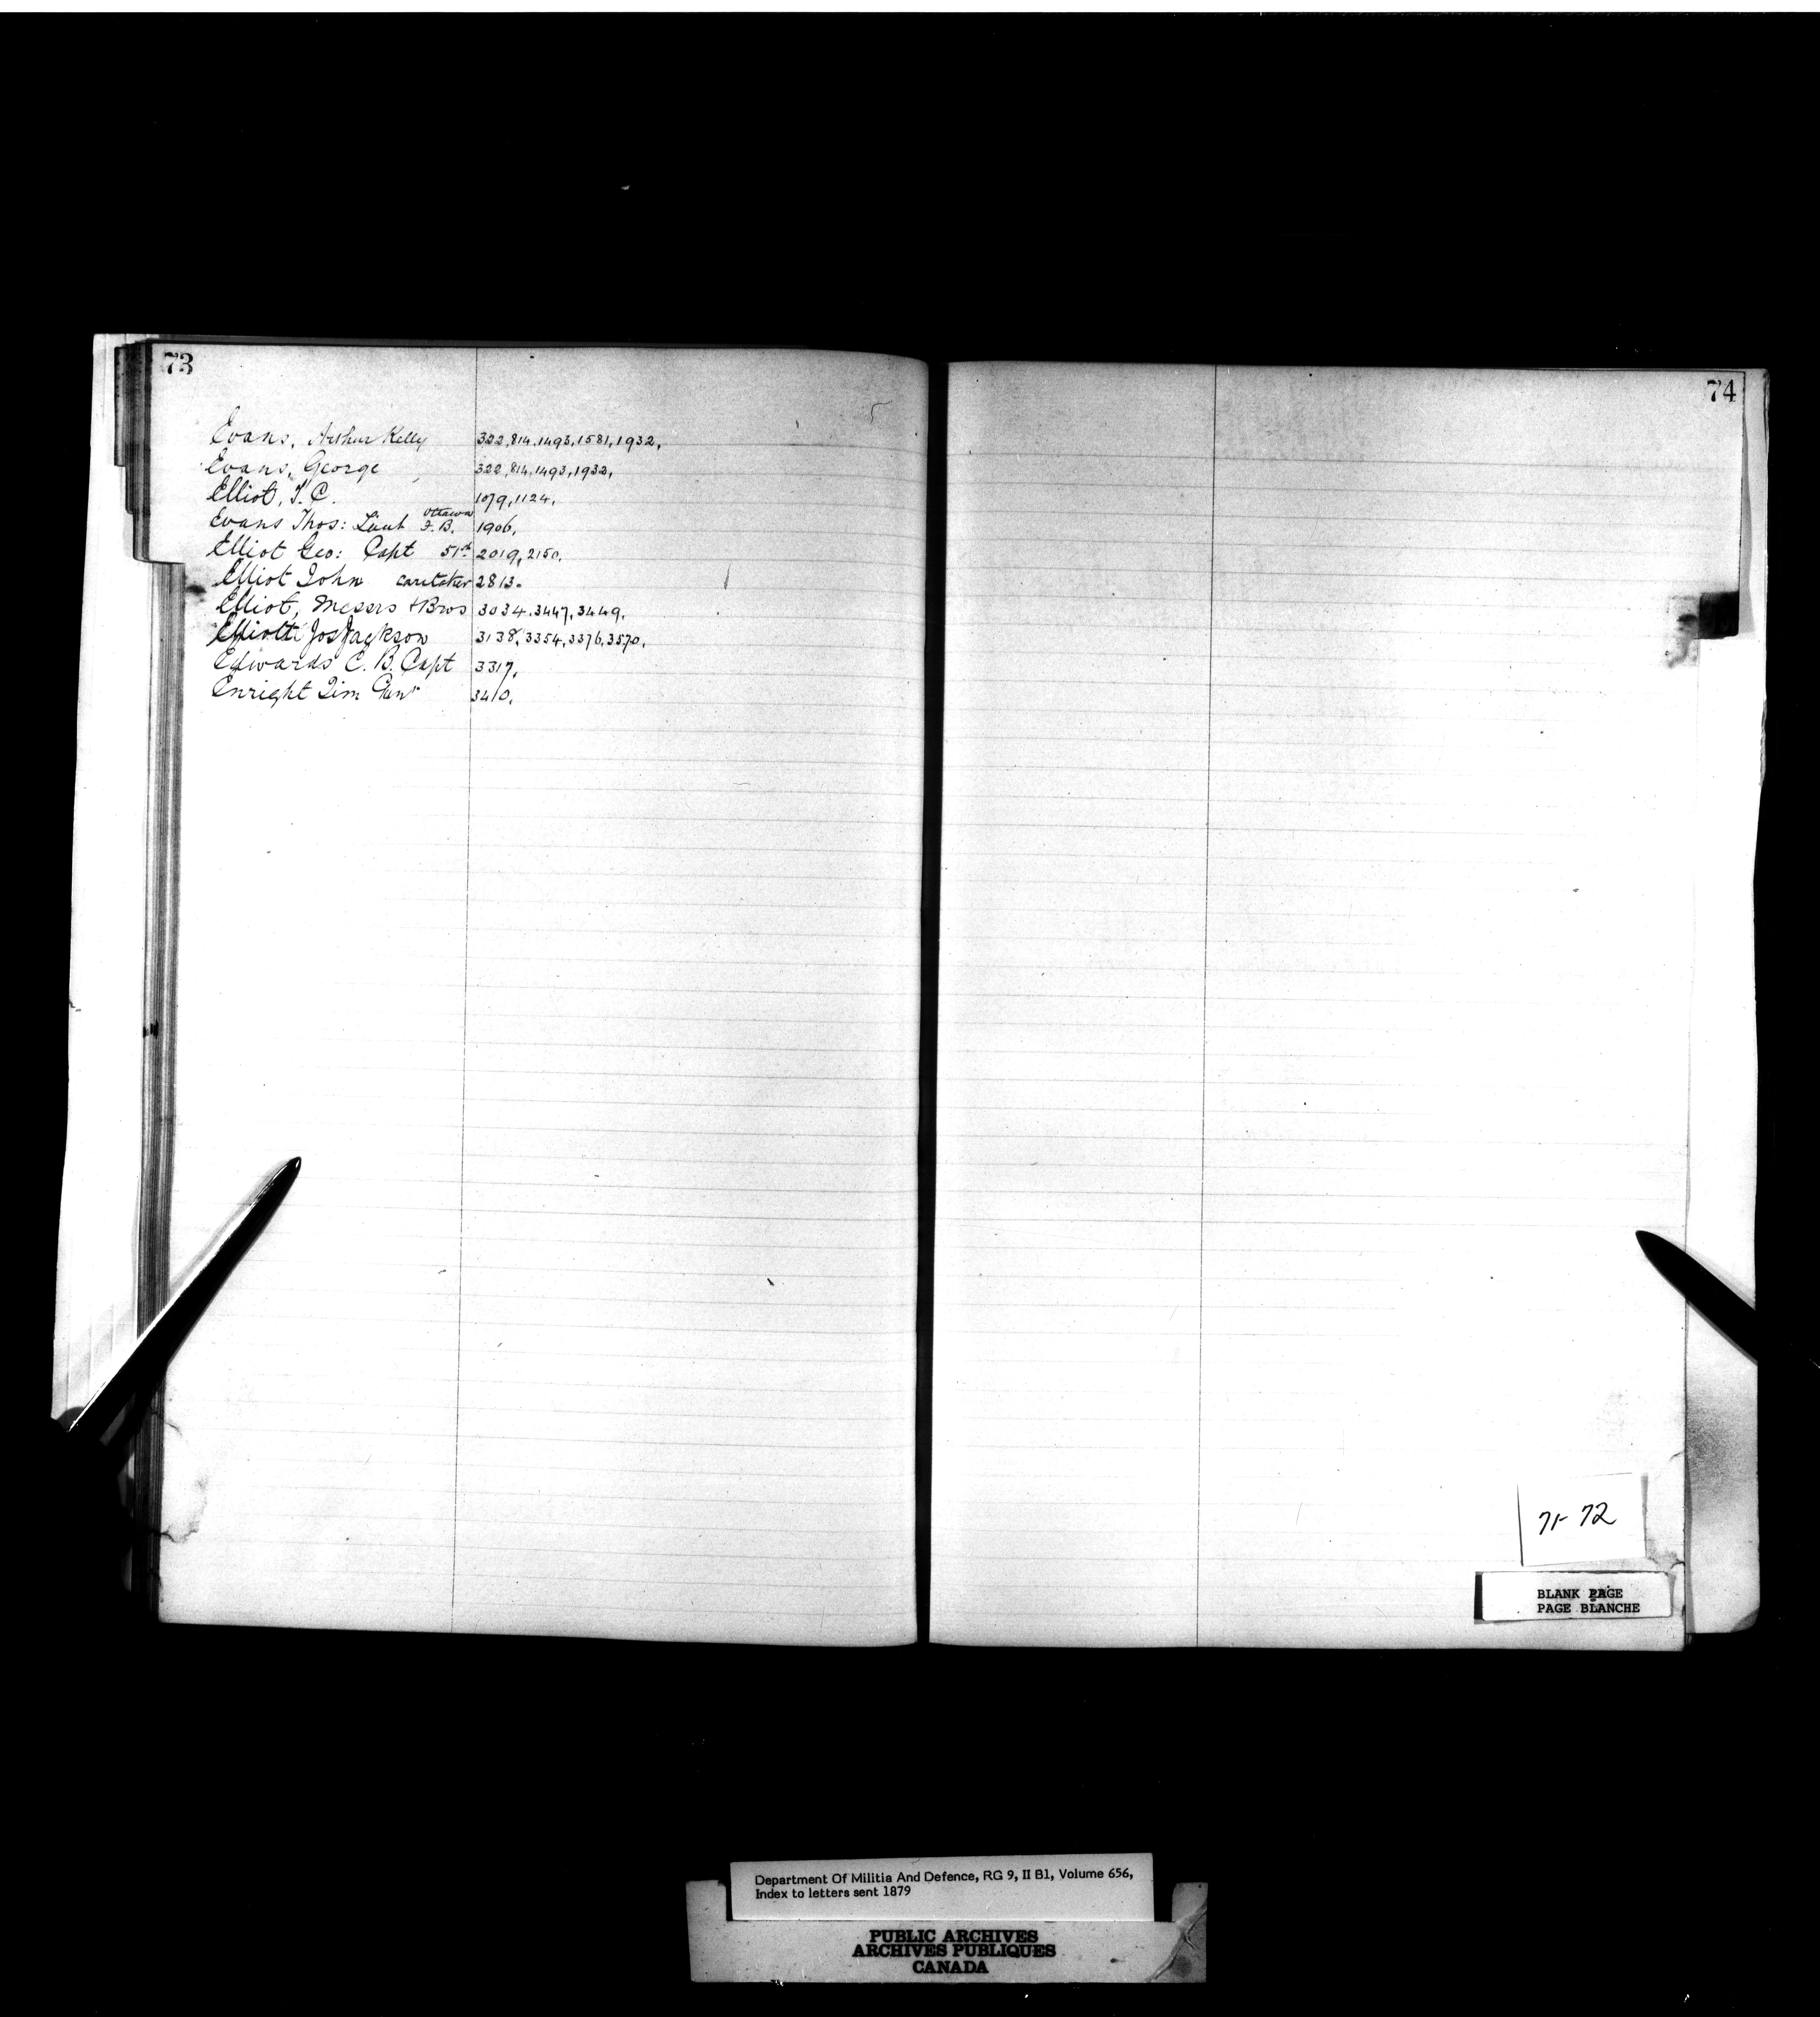 73
Evans, Arthur Kelly 322, 814, 1493, 1581, 1932,
Evans, George 322, 814, 1493, 1932,
Elliot, T. C. 1079, 1124,
Evans Thos: Lieut Ottawa F. B. 1906,
Elliot Geo: Capt 51st 2019, 2150.
Elliot John caretaker 2813.
Elliot, Messrs & Bros 3034, 3447, 3449,
Elliott Jos Jackson 3138, 3354, 3376, 3570,
Edwards C. B. Capt 3317,
Enright Tim Gunr 3410,
74
71-72
BLANK PAGE
PAGE BLANCHE
Department Of Militia And Defence, RG 9, II B1, Volume 656,
Index to letters sent 1879
PUBLIC ARCHIVES
ARCHIVES PUBLIQUES
CANADA